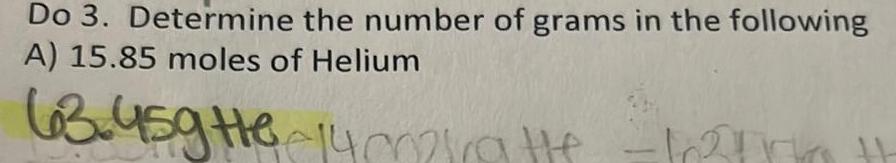 Do 3. Determine the number of grams in the following
A) 15.85 moles of Helium
63.45g He